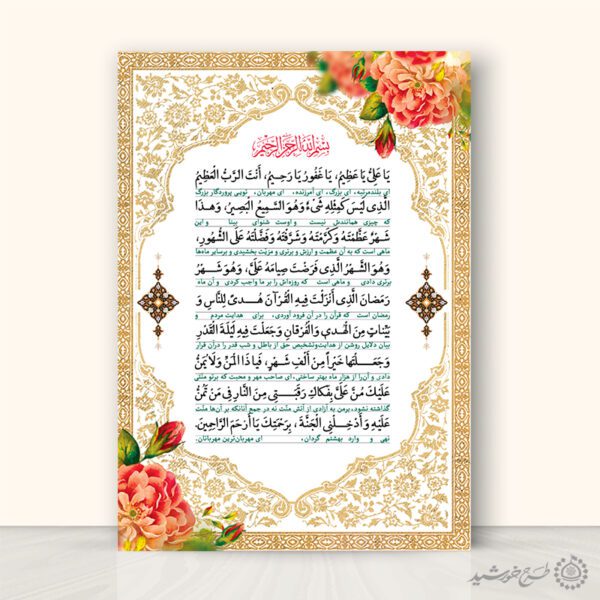 بِسْمِ اللهِ الرَّحْمنِ الرَّحِيمِ
يَا عَلِيُّ يَا عَظِيمُ، يَا غَفُورُ يَا رَحِيمُ، أَنْتَ الرَّبُّ الْعَظِيمُ
ای بلندمرتبه، ای بزرگ، ای آمرزنده، ای مهربان، تویی پروردگار بزرگ
الَّذِي لَيْسَ كَمِثْلِهِ شَيْءٌ وَهُوَ السَّمِيعُ الْبَصِيرُ، وَهٰذَا
که چیزی همانندش نیست و اوست شنوای بینا و این
شَهْرٌ عَظَّمْتَهُ وَكَرَّمْتَهُ وَشَرَّفْتَهُ وَفَضَّلْتَهُ عَلَى الشُّهُورِ،
ماهی است که به آن عظمت و ارزش و برتری و مزیت بخشیدی و برسایر ماه‌ها
وَهُوَ الشَّهْرُ الَّذِي فَرَضْتَ صِيَامَهُ عَلَيَّ، وَهُوَ شَهْرُ
برتری دادی و ماهی است که روزه‌اش را بر ما واجب کردی و آن ماه
رَمَضَانَ الَّذِي أَنْزَلْتَ فِيهِ الْقُرْآنَ هُدىً لِلنَّاسِ وَ
رمضان است که قرآن را در آن فرود آوردی، برای هدایت مردم و
بَيِّنَاتٍ مِنَ الْهُدىٰ وَالْفُرْقَانِ وَجَعَلْتَ فِيهِ لَيْلَةَ الْقَدْرِ
بیان دلایل روشن از هدایت‌وتشخیص حق از باطل و شب قدر را درآن قرار
وَجَعَلْتَهَا خَيْراً مِنْ أَلْفِ شَهْرٍ، فَيَا ذَا الْمَنِّ وَلَا يُمَنُّ
دادی و آن‌را از هزار ماه بهتر ساختی، ای صاحب مهر و محبت که برتو منتی
عَلَيْكَ مُنَّ عَلَيَّ بِفَكَاكِ رَقَبَتِي مِنَ النَّارِ فِي مَنْ تَمُنُّ
گذاشته نشود، برمن به آزادی از آتش منّت نه در جمع آنانکه بر آن‌ها منّت
عَلَيْهِ وَأَدْخِلْنِي الْجَنَّةَ، بِرَحْمَتِكَ يَا أَرْحَمَ الرَّاحِمِينَ.
نهی و وارد بهشتم گردان، ای مهربان‌ترین مهربانان.
طرح خورشید